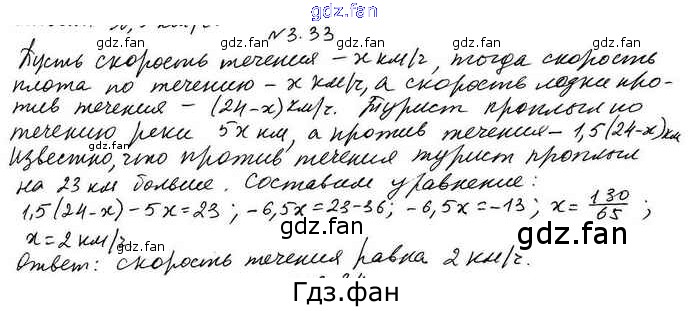 №3.33
Пусть скорость течения – x км/ч, тогда скорость
плота по течению – x км/ч, а скорость лодки про-
тив течения – (24-x) км/ч. Турист проплыл по
течению реки 5x км, а против течения – 1,5(24-x) км
Известно, что против течения турист проплыл
на 23 км больше. Составим уравнение:
1,5(24-x)-5x=23; -6,5x=23-36; -6,5x=-13; x=130/65;
x=2 км/ч
Ответ: скорость течения равна 2 км/ч.
gdz.fan gdz.fan gdz.fan
gdz.fan gdz.fan
gdz.fan gdz.fan gdz.fan
gdz.fan gdz.fan
gdz.fan gdz.fan gdz.fan
Гдз.фан